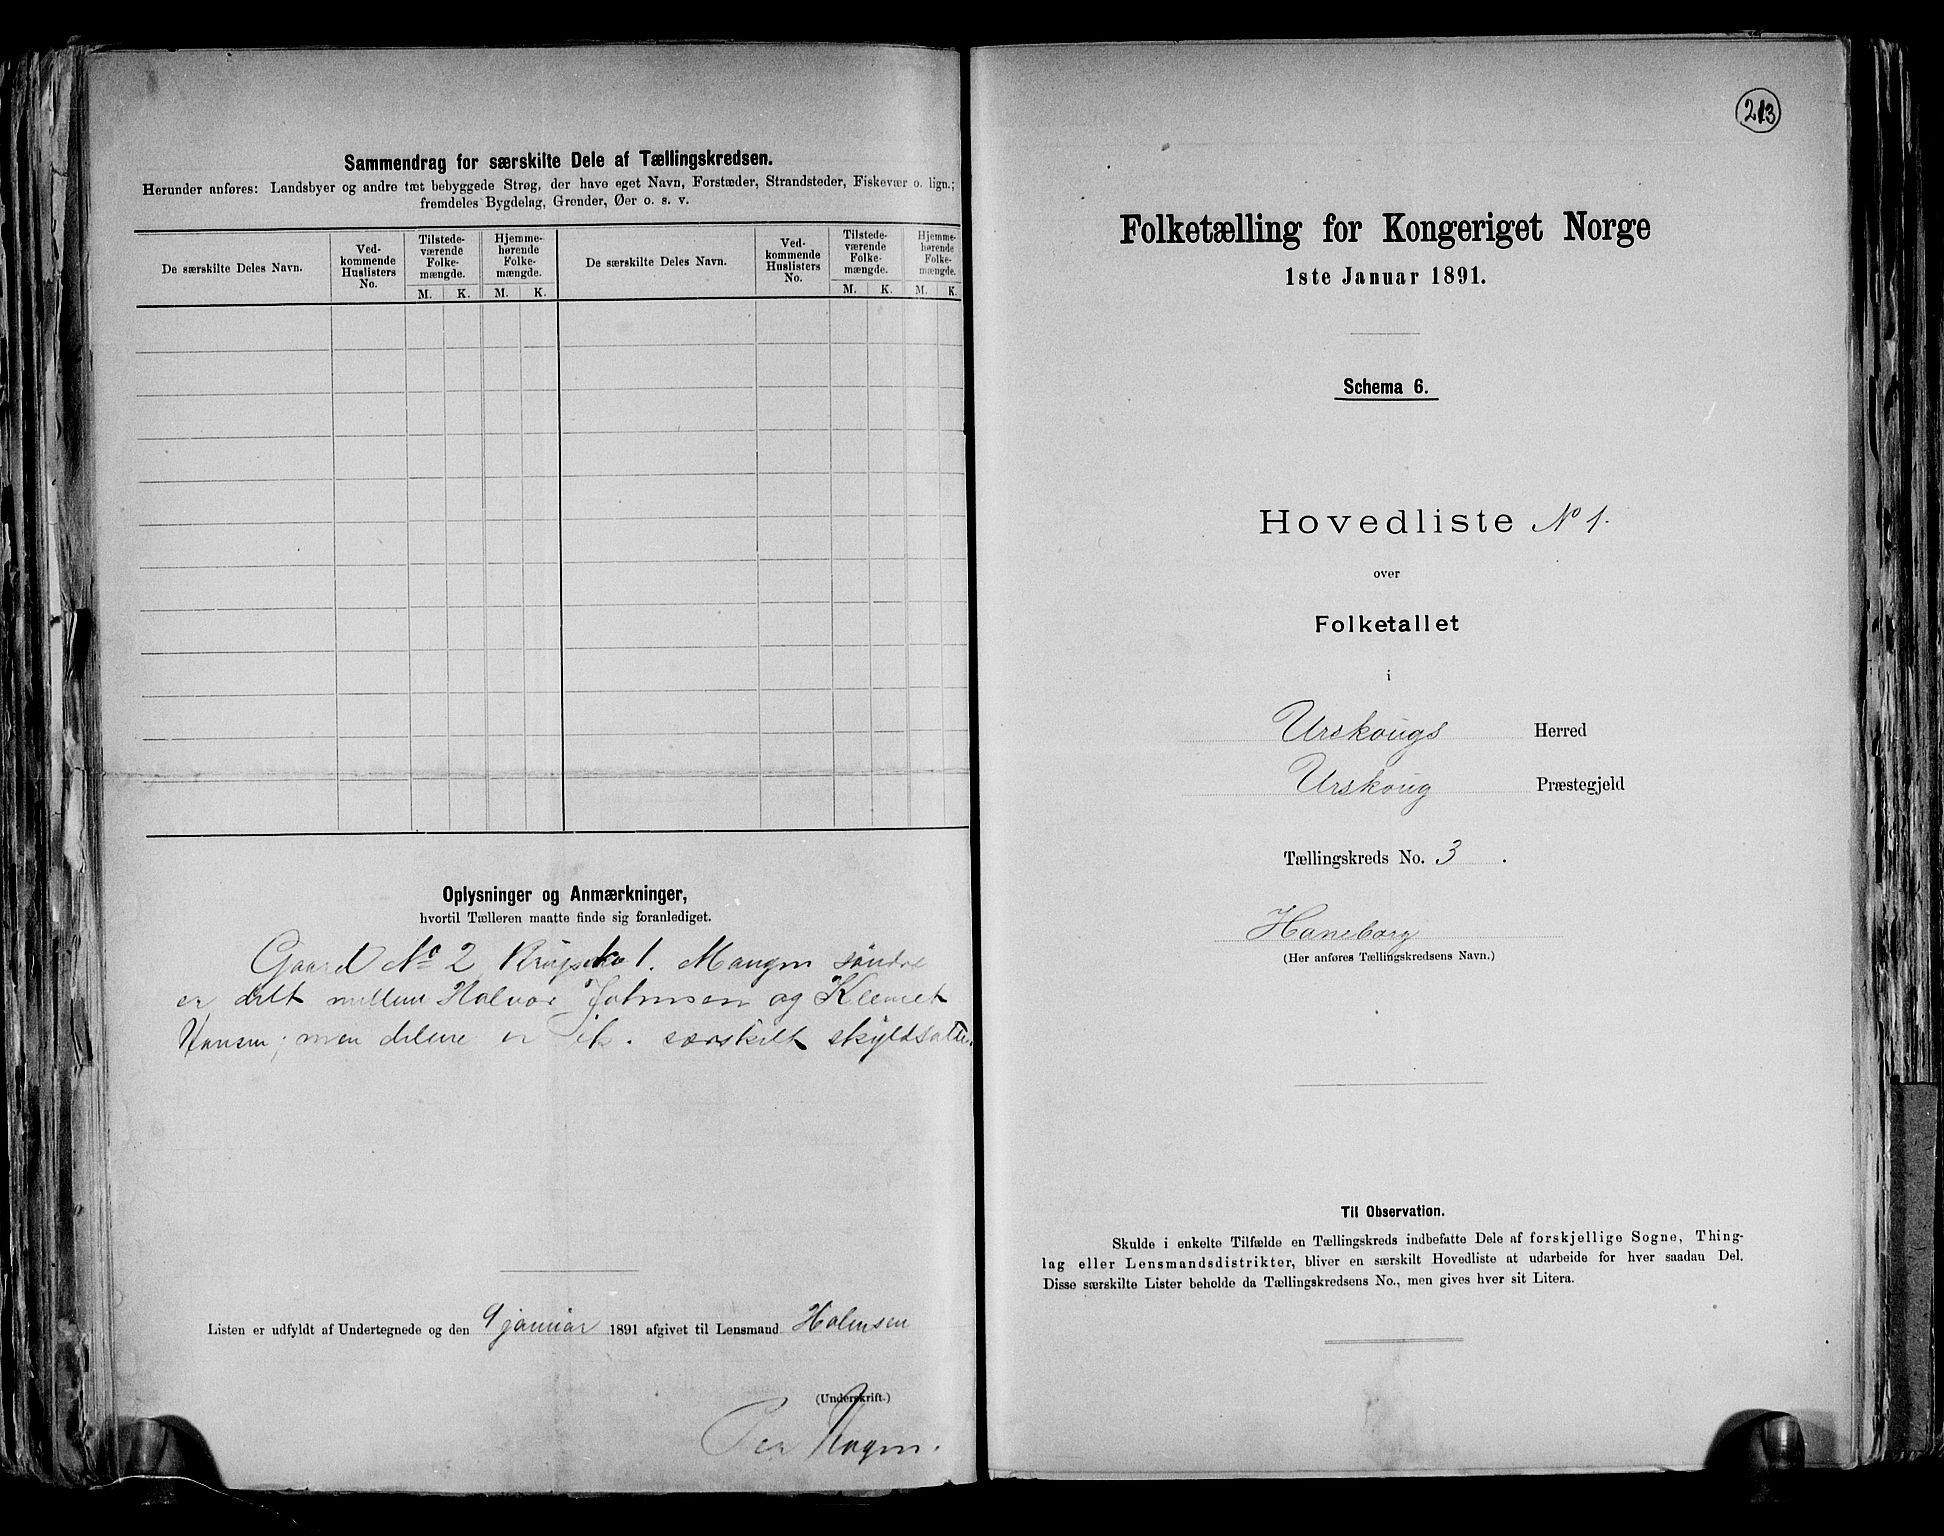 Sammendrag for særskilte Dele af Tællingskredsen.
Herunder anføres: Landsbyer og andre tæt bebyggede Strøg, der have eget Navn, Forstæder, Strandsteder, Fiskevær o. lign.;
fremdeles Bygdelag, Grender, Øer o. s. v.
De særskilte Deles Navn.
Ved-
kommende
Huslisters
No.
Tilstede-
værende
Folke-
mængde.
M. K.
Hjemme-
hørende
Folke-
mængde.
M. K.
De særskilte Deles Navn.
Ved-
kommende
Huslisters
No.
Tilstede-
værende
Folke-
mængde.
M. K.
Hjemme-
hørende
Folke-
mængde.
M. K.
Oplysninger og Anmærkninger,
hvortil Tælleren maatte finde sig foranlediget.
Gaard No 2 1. Mangen søndre
er delt mellem Halvor Johnsen og Klemet
Hansen; men delene er ik. særskilt skyldsatte.
Listen er udfyldt af Undertegnede og den 9 januar 1891 afgivet til Lensmand Holmsen
(Underskrift.)
Per
213
Folketælling for Kongeriget Norge
1ste Januar 1891.
Schema 6.
Hovedliste No 1.
over
Folketallet
i
Urskougs Herred
Urskoug Præstegjeld
Tællingskreds No. 3.
Haneborg
(Her anføres Tællingskredsens Navn.)
Til Observation.
Skulde i enkelte Tilfælde en Tællingskreds indbefatte Dele af forskjellige Sogne, Thing-
lag eller Lensmandsdistrikter, bliver en særskilt Hovedliste at udarbeide for hver saadan Del.
Disse særskilte Lister beholde da Tællingskredsens No., men gives hver sit Litera.